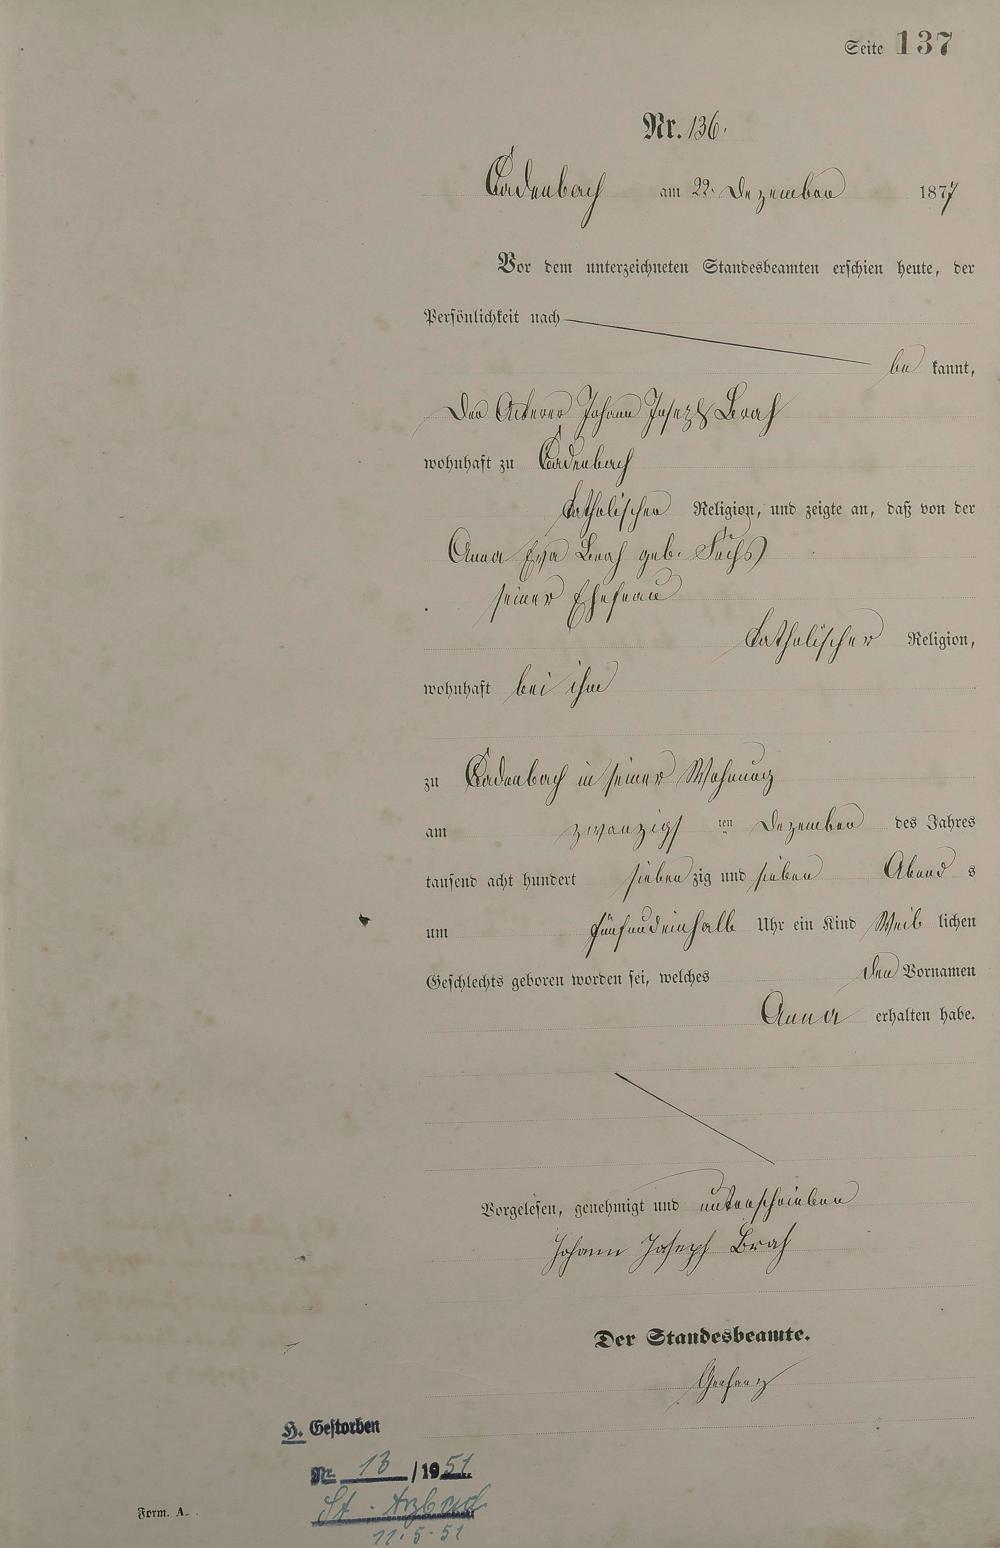 Seite 137
Nr. 136.
Cadenbach am 22. Dezember 1877
Vor dem unterzeichneten Standesbeamten erschien heute, der
Persönlichkeit nach
be kannt,
der Ackerer Johann Joseph Brah
wohnhaft zu Cadenbach
katholischer Religion, und zeigte an, daß von der
Anna Eva Brah geb. Fuchs
seiner Ehefrau
katholischer Religion,
wohnhaft bei ihm
zu Cadenbach in seiner Wohnung
am zwanzigs ten Dezember des Jahres
tausend acht hundert sieben zig und sieben Abend s
um fünfundeinhalb Uhr ein Kind Weib lichen
Geschlechts geboren worden sei, welches den Vornamen
Anna erhalten habe.
Vorgelesen, genehmigt und unterschrieben
Johann Joseph Brah
Der Standesbeamte.
H. Gestorben
Nr. 13 /1951
St. Arzbach
11.5.51
Form. A.